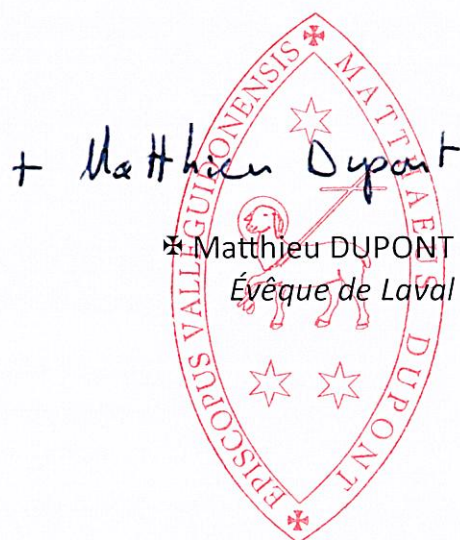 + Matthieu Dupont
✠ Matthieu DUPONT
Évêque de Laval
✠ MATTHAEUS DUPONT
✠ EPISCOPUS VALLEGUIDONENSIS